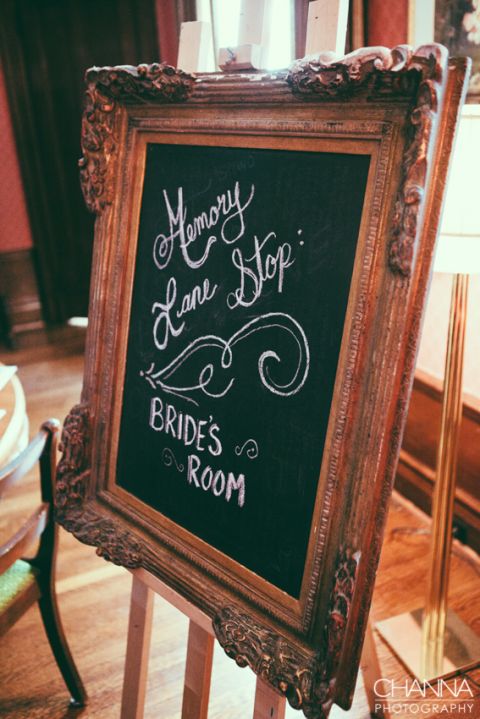 Memory
Lane Stop:
BRIDE'S
ROOM
CHANNA
PHOTOGRAPHY